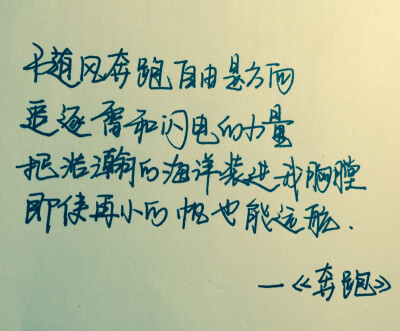 随风奔跑自由是方向
追逐雷和闪电的力量
把浩瀚的海洋装进我胸膛
即使再小的帆也能远航.
—《奔跑》